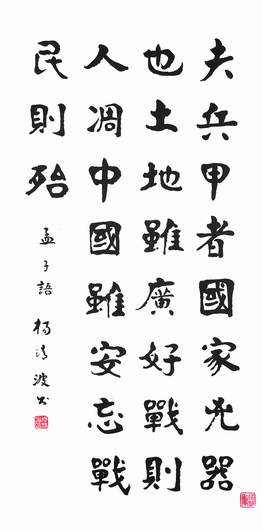 夫兵甲者國家兇器
也土地雖廣好戰則
人凋中國雖安忘戰
民則殆
孟子語 楊清波书